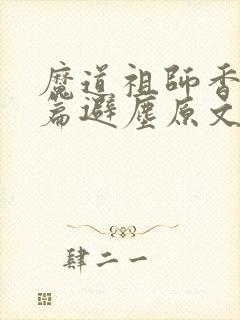 魔道祖師香
篇避塵原文
肆二一